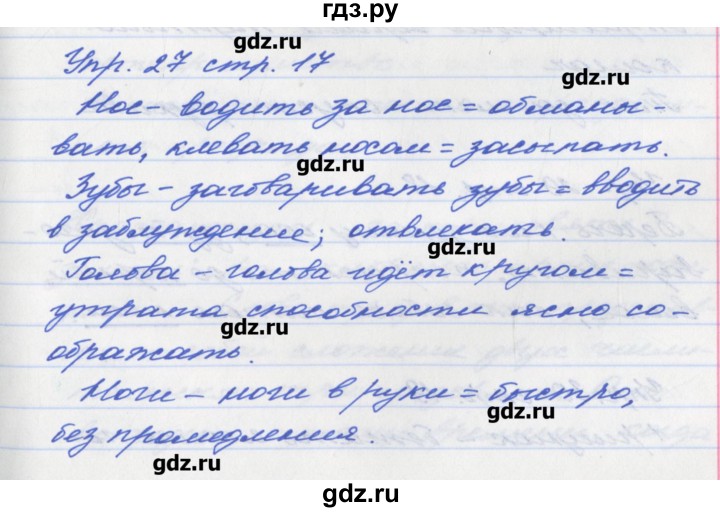 гдз.ру
gdz.ru
Упр. 27 стр. 17
gdz.ru
Нос – водить за нос = обманы-
вать, клевать носом = засыпать.
gdz.ru
Зубы – заговаривать зубы = вводить
в заблуждение; отвлекать.
gdz.ru
Голова – голова идёт кругом =
утрата способности ясно со-
gdz.ru
ображать.
Ноги – ноги в руки = быстро,
gdz.ru
без промедления.
gdz.ru
gdz.ru